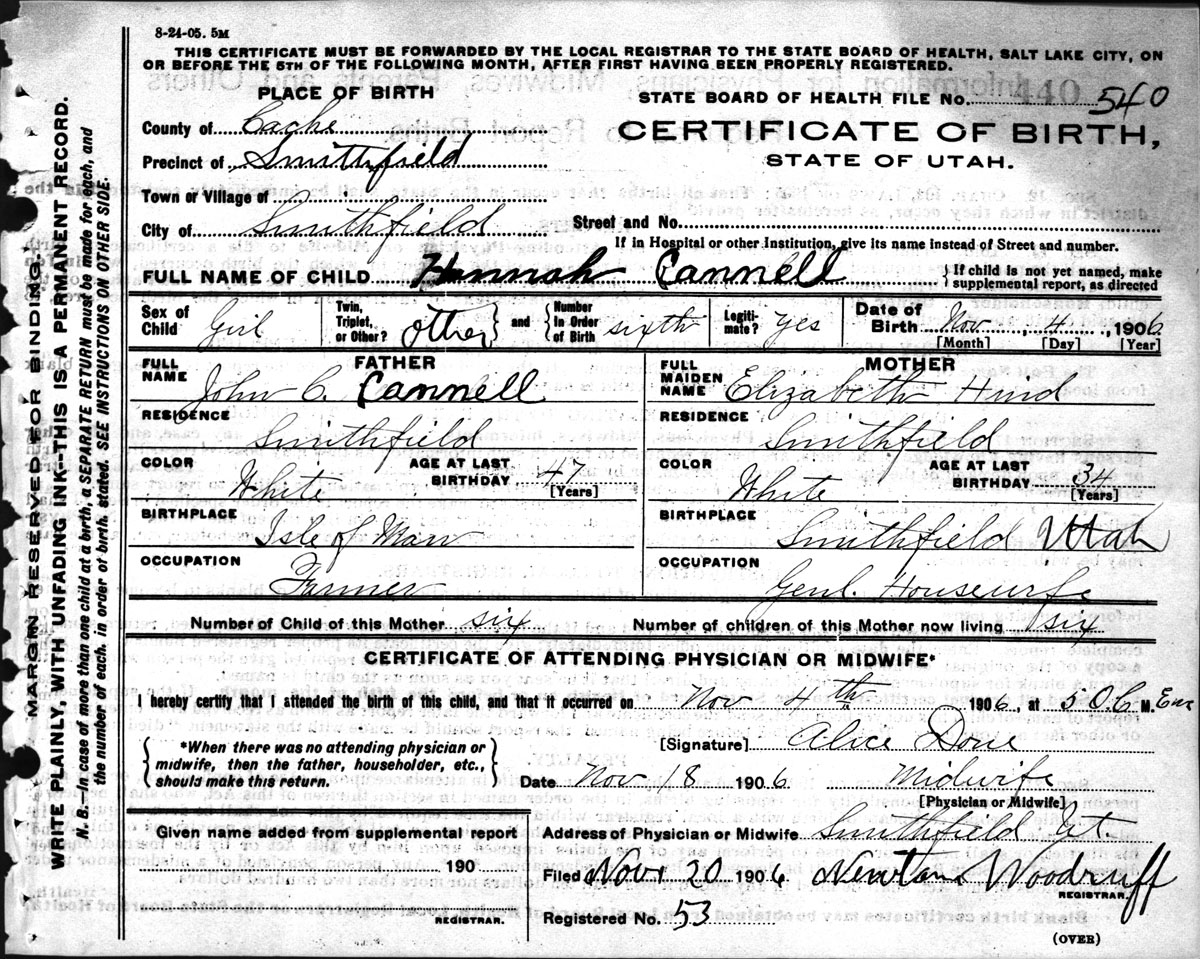 8-24-05. 5M
THIS CERTIFICATE MUST BE FORWARDED BY THE LOCAL REGISTRAR TO THE STATE BOARD OF HEALTH, SALT LAKE CITY, ON
OR BEFORE THE 5TH OF THE FOLLOWING MONTH, AFTER FIRST HAVING BEEN PROPERLY REGISTERED.
PLACE OF BIRTH
STATE BOARD OF HEALTH FILE No. 440 540
County of Cache
CERTIFICATE OF BIRTH,
Precinct of Smithfield
STATE OF UTAH.
Town or Village of
City of Smithfield Street and No.
If in Hospital or other Institution, give its name instead of Street and number.
FULL NAME OF CHILD Hannah Cannell } If child is not yet named, make supplemental report, as directed
Sex of Child Girl Twin, Triplet, or Other? Other } and { Number In Order of Birth sixth Legiti-mate? yes Date of Birth Nov, 4, 1906
[Month] [Day] [Year]
FATHER MOTHER
FULL NAME John C. Cannell FULL MAIDEN NAME Elizabeth Hind
RESIDENCE Smithfield RESIDENCE Smithfield
COLOR White AGE AT LAST BIRTHDAY 47 [Years] COLOR White AGE AT LAST BIRTHDAY 34 [Years]
BIRTHPLACE Isle of Man BIRTHPLACE Smithfield Utah
OCCUPATION Farmer OCCUPATION Genl. Housewife
Number of Child of this Mother six Number of children of this Mother now living six
CERTIFICATE OF ATTENDING PHYSICIAN OR MIDWIFE*
I hereby certify that I attended the birth of this child, and that it occurred on Nov 4th 1906, at 5 O.C M.
[Signature] Alice Done
{ *When there was no attending physician or midwife, then the father, householder, etc., should make this return. }
Date Nov 18 1906 Midwife
[Physician or Midwife]
Given name added from supplemental report
190
REGISTRAR.
Address of Physician or Midwife Smithfield Ut
Filed Nov. 20 1906 Newton Woodruff
REGISTRAR.
Registered No. 53
(OVER)
MARGIN RESERVED FOR BINDING.
WRITE PLAINLY, WITH UNFADING INK--THIS IS A PERMANENT RECORD.
N. B.--In case of more than one child at a birth, a SEPARATE RETURN must be made for each, and
the number of each, in order of birth, stated. SEE INSTRUCTIONS ON OTHER SIDE.